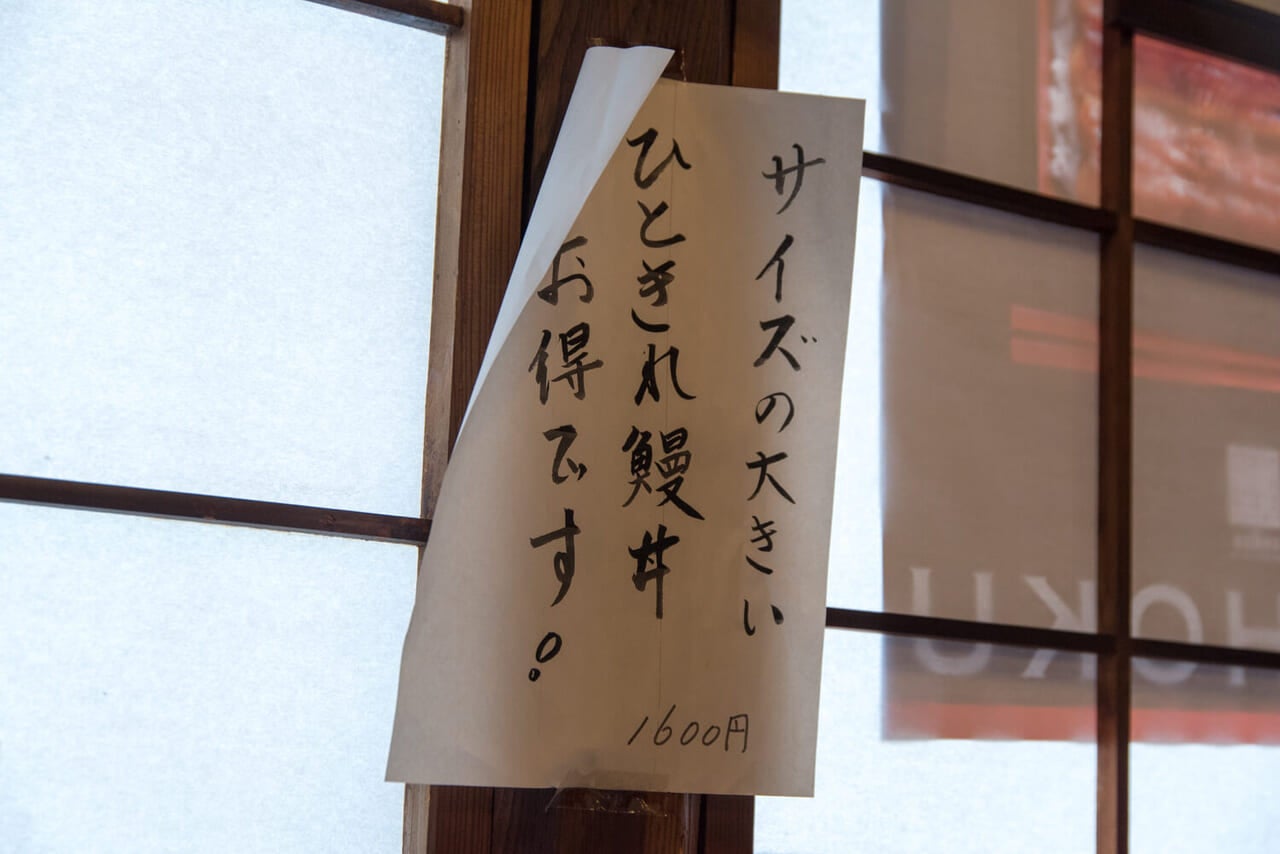 サイズの大きい
ひときれ鰻丼
お得です!
1600円
HOKU